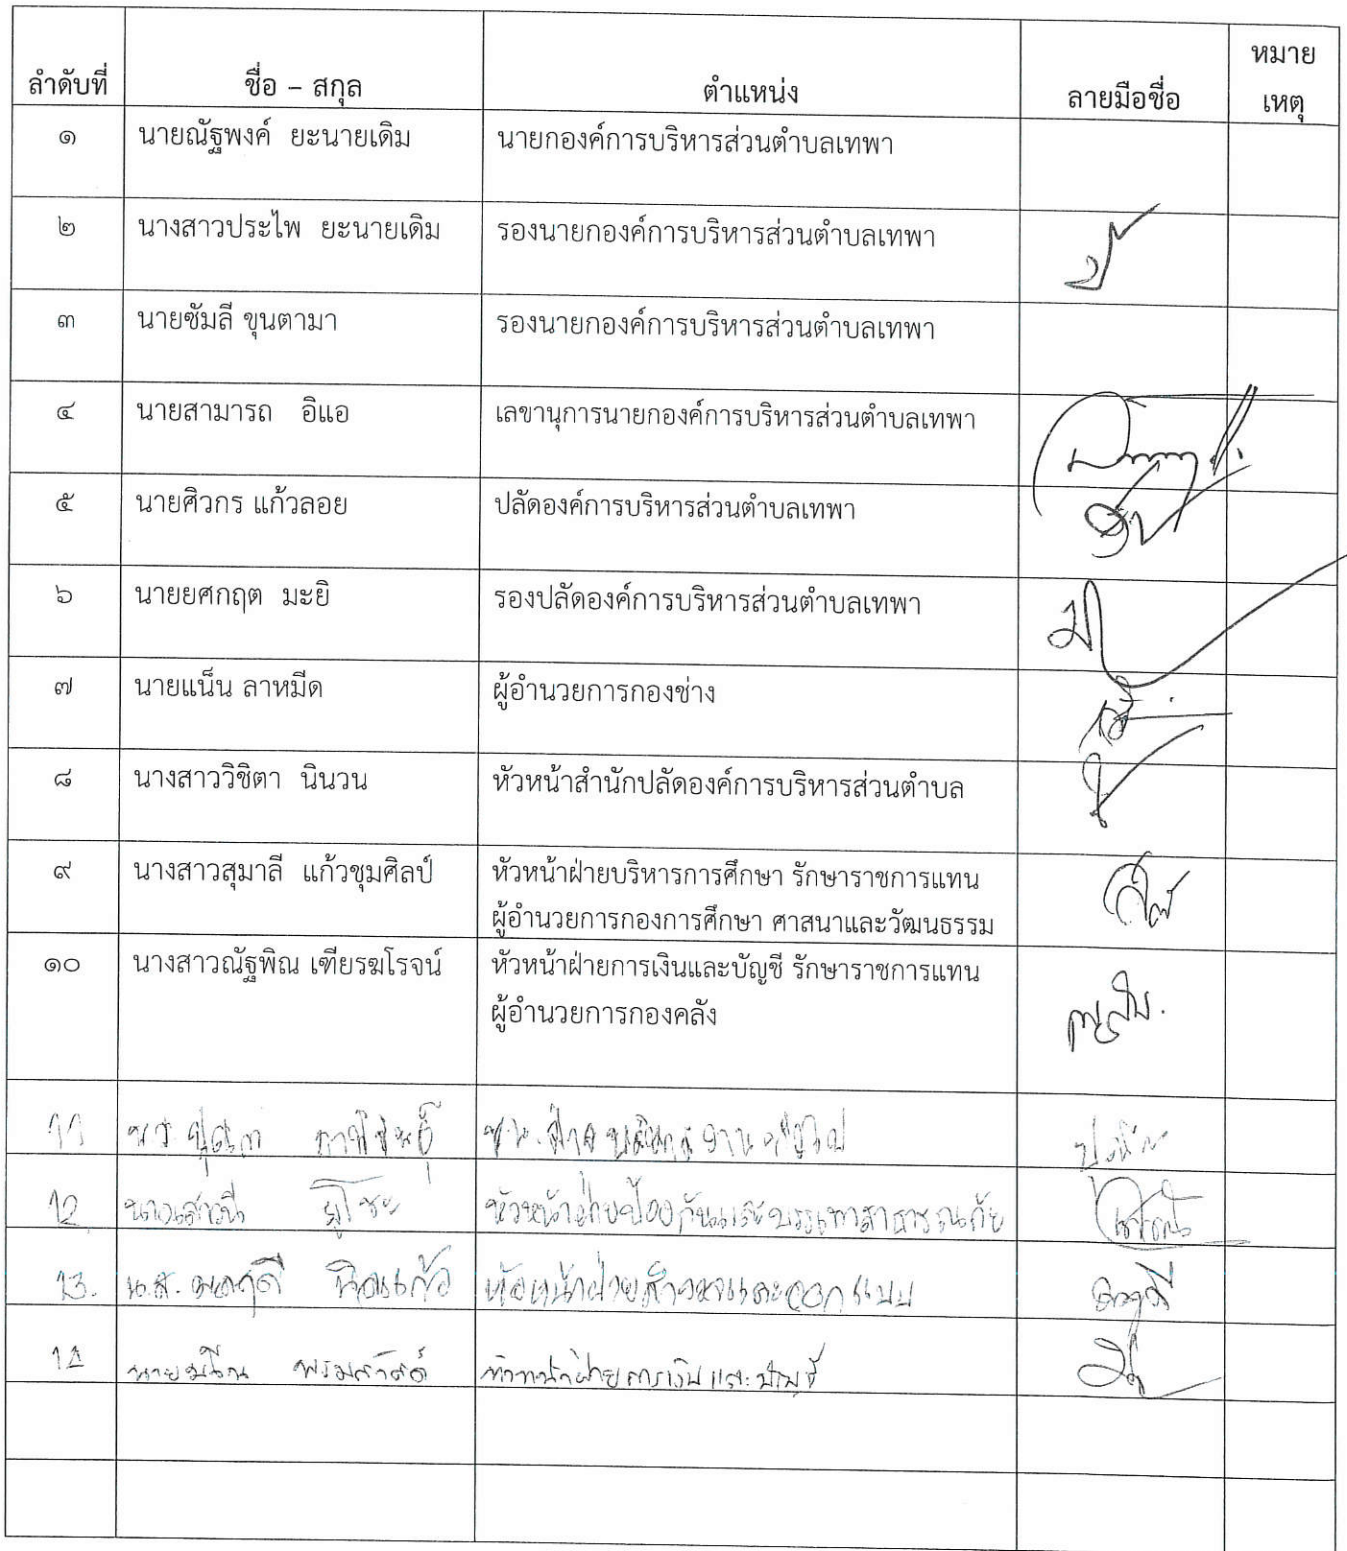 ลำดับที่ ชื่อ – สกุล ตำแหน่ง ลายมือชื่อ หมาย
เหตุ
๑ นายณัฐพงค์ ยะนายเดิม นายกองค์การบริหารส่วนตำบลเทพา
๒ นางสาวประไพ ยะนายเดิม รองนายกองค์การบริหารส่วนตำบลเทพา
๓ นายซัมลี ขุนตามา รองนายกองค์การบริหารส่วนตำบลเทพา
๔ นายสามารถ อิแอ เลขานุการนายกองค์การบริหารส่วนตำบลเทพา
๕ นายศิวกร แก้วลอย ปลัดองค์การบริหารส่วนตำบลเทพา
๖ นายยศกฤต มะยิ รองปลัดองค์การบริหารส่วนตำบลเทพา
๗ นายแน็น ลาหมีด ผู้อำนวยการกองช่าง
๘ นางสาววิชิตา นินวน หัวหน้าสำนักปลัดองค์การบริหารส่วนตำบล
๙ นางสาวสุมาลี แก้วชุมศิลป์ หัวหน้าฝ่ายบริหารการศึกษา รักษาราชการแทน
ผู้อำนวยการกองการศึกษา ศาสนาและวัฒนธรรม
๑๐ นางสาวณัฐพิณ เฑียรฆโรจน์ หัวหน้าฝ่ายการเงินและบัญชี รักษาราชการแทน
ผู้อำนวยการกองคลัง
11
12 หัวหน้าฝ่ายป้องกันและบรรเทาสาธารณภัย
13. น.ส. นิตแก้ว หัวหน้าฝ่ายสำรวจและออกแบบ
14 นาย หัวหน้าฝ่ายการเงินและบัญชี